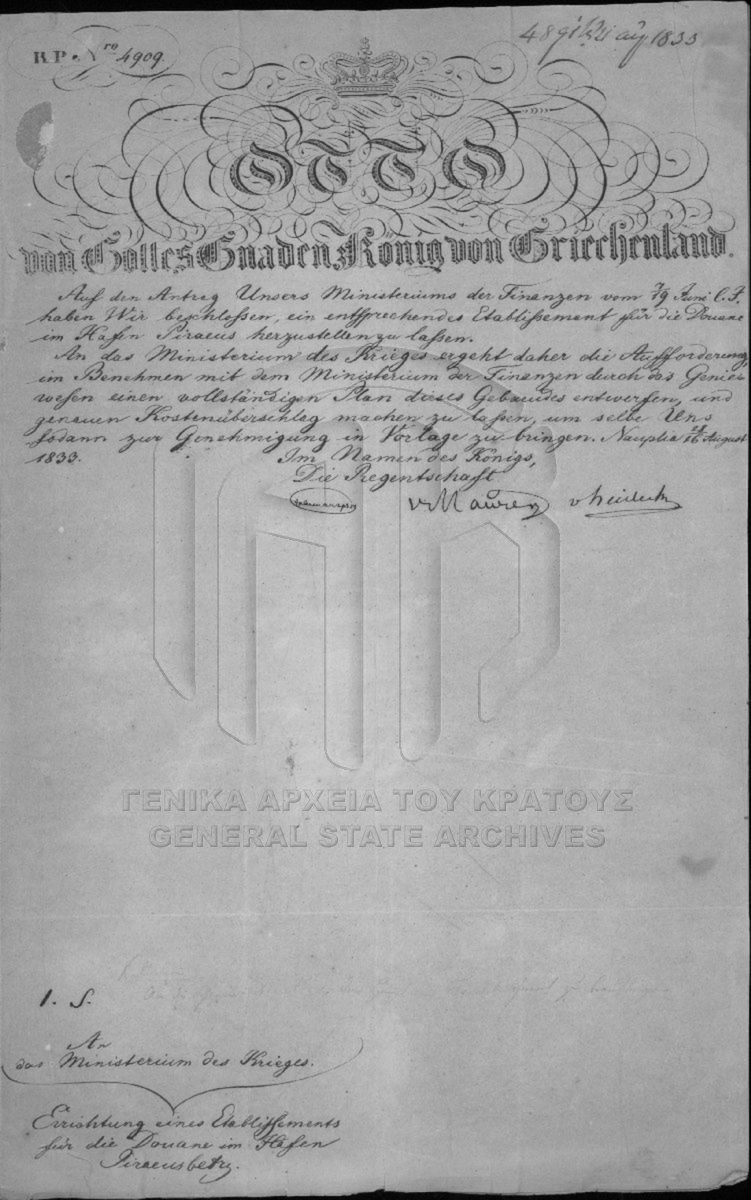 R.P. Nro 4909.
1833
OTTO
von Gottes Gnaden König von Griechenland.
Auf den Antrag Unsers Ministeriums der Finanzen vom 7/19 Juni l. J.
haben Wir beschlossen, ein entsprechendes Etablissement für die Douane
im Hafen Piraeus herzustellen zu lassen.
An das Ministerium des Krieges ergeht daher die Aufforderung,
im Benehmen mit dem Ministerium der Finanzen durch das Genie-
wesen einen vollständigen Plan dieses Gebaudes entwerfen, und
genauen Kostenüberschlag machen zu lassen, um selbe Uns
sodann zur Genehmigung in Vorlage zu bringen. Nauplia August
1833. Im Namen des Königs,
Die Regentschaft
v. Maurer v. Heideck
ΓΕΝΙΚΑ ΑΡΧΕΙΑ ΤΟΥ ΚΡΑΤΟΥΣ
GENERAL STATE ARCHIVES
1. S.
An
das Ministerium des Krieges.
Errichtung eines Etablissements
für die Douane im Hafen
Piraeus betr.